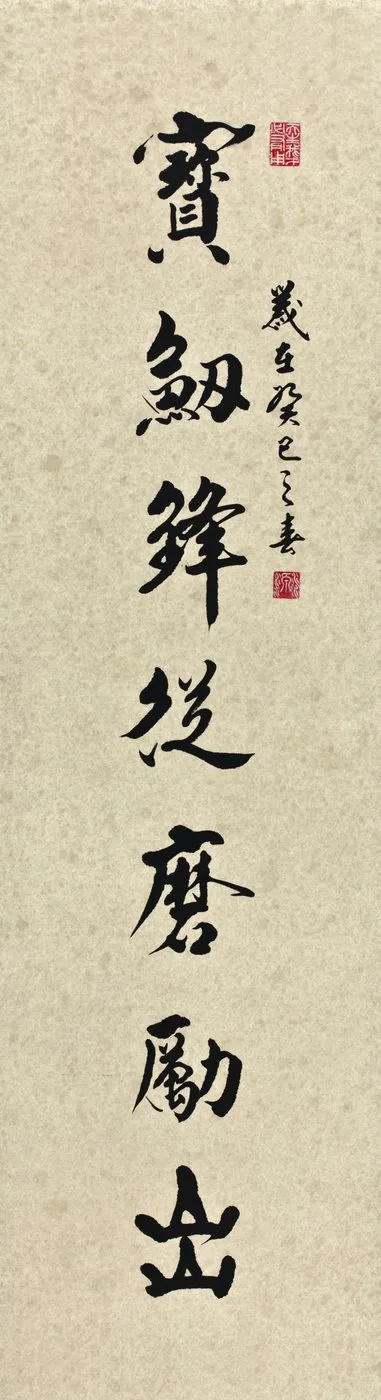 歲在癸巳之春
寶劒鋒從磨勵出